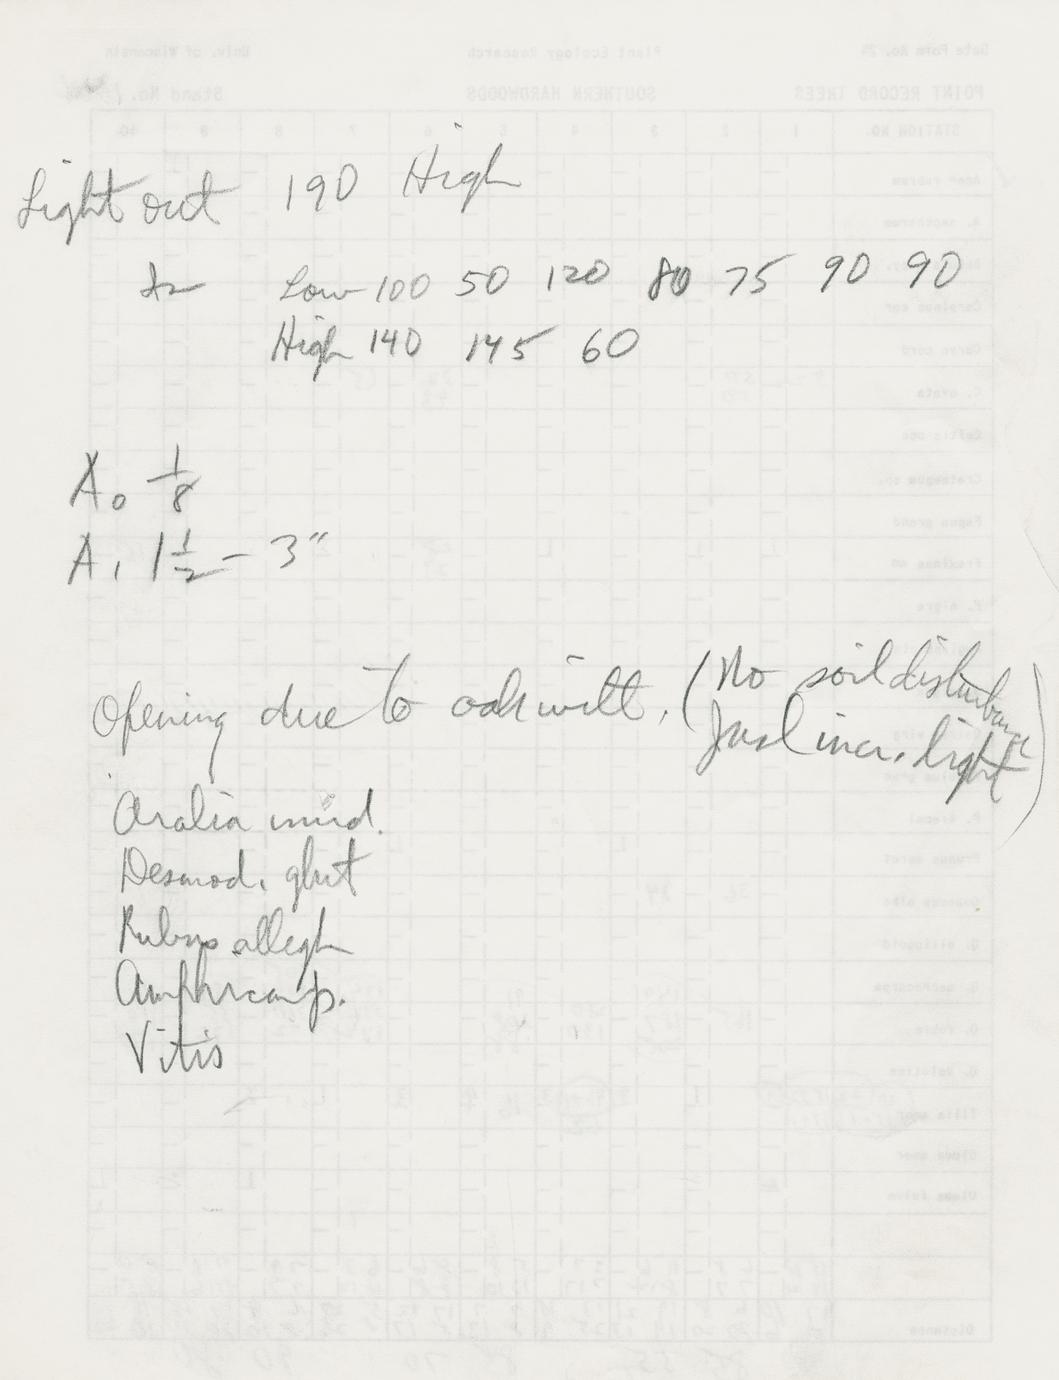 Light out 190 High
In Low 100 50 120 80 75 90 90
High 140 145 60
A0 1/8
A1 1 1/2 - 3"
Opening due to oak wilt. (No soil disturbance
Just incr. light)
Aralia nud.
Desmod. glut
Rubus allegh
Amphicarp.
Vitis